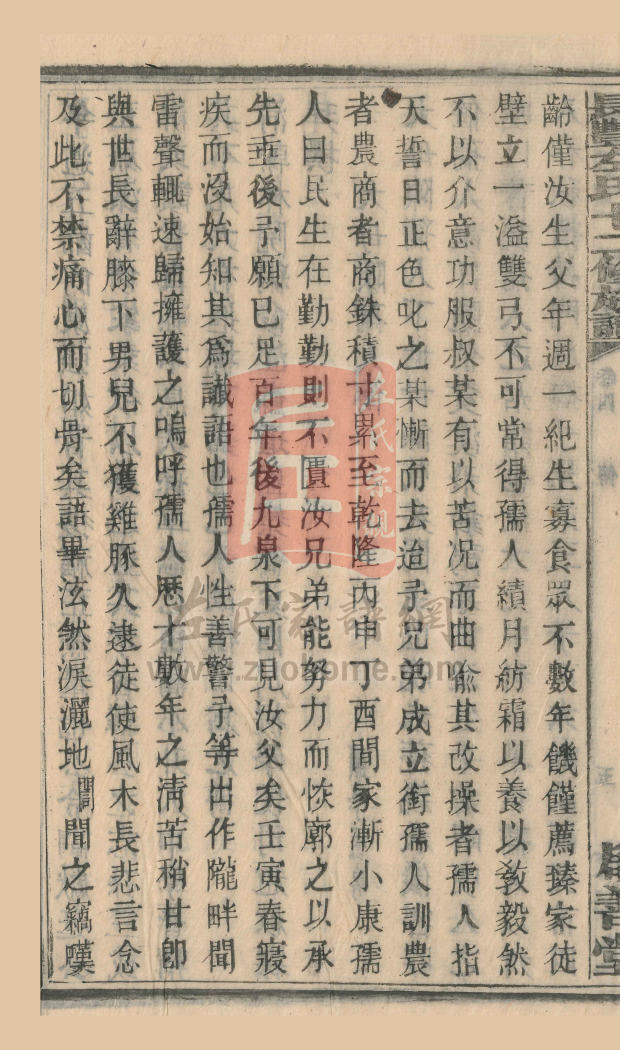 齡僅汝生父年週一紀生寡食眾不數年饑饉薦臻家徒
壁立一溢雙弓不可常得孺人績月紡霜以養以教毅然
不以介意功服叔某有以苦况而曲喻其改操者孺人指
天誓日正色叱之某慚而去迨予兄弟成立銜孺人訓農
者農商者商銖積寸累至乾隆丙申丁酉間家漸小康孺
人曰民生在勤勤則不匱汝兄弟能努力而恢廓之以承
先垂後予願已足百年後九泉下可見汝父矣壬寅春寢
疾而沒始知其爲讖語也孺人性善警予等出作隴畔聞
雷聲輒速歸擁護之嗚呼孺人歷才數年之淸苦稍甘卽
與世長辭膝下男兒不獲雞豚久逮徒使風木長悲言念
及此不禁痛心而切骨矣語畢泫然淚灑地誾聞之竊嘆
氏十二修族譜
卷四
善堂
左氏家譜網
www.zuohome.com